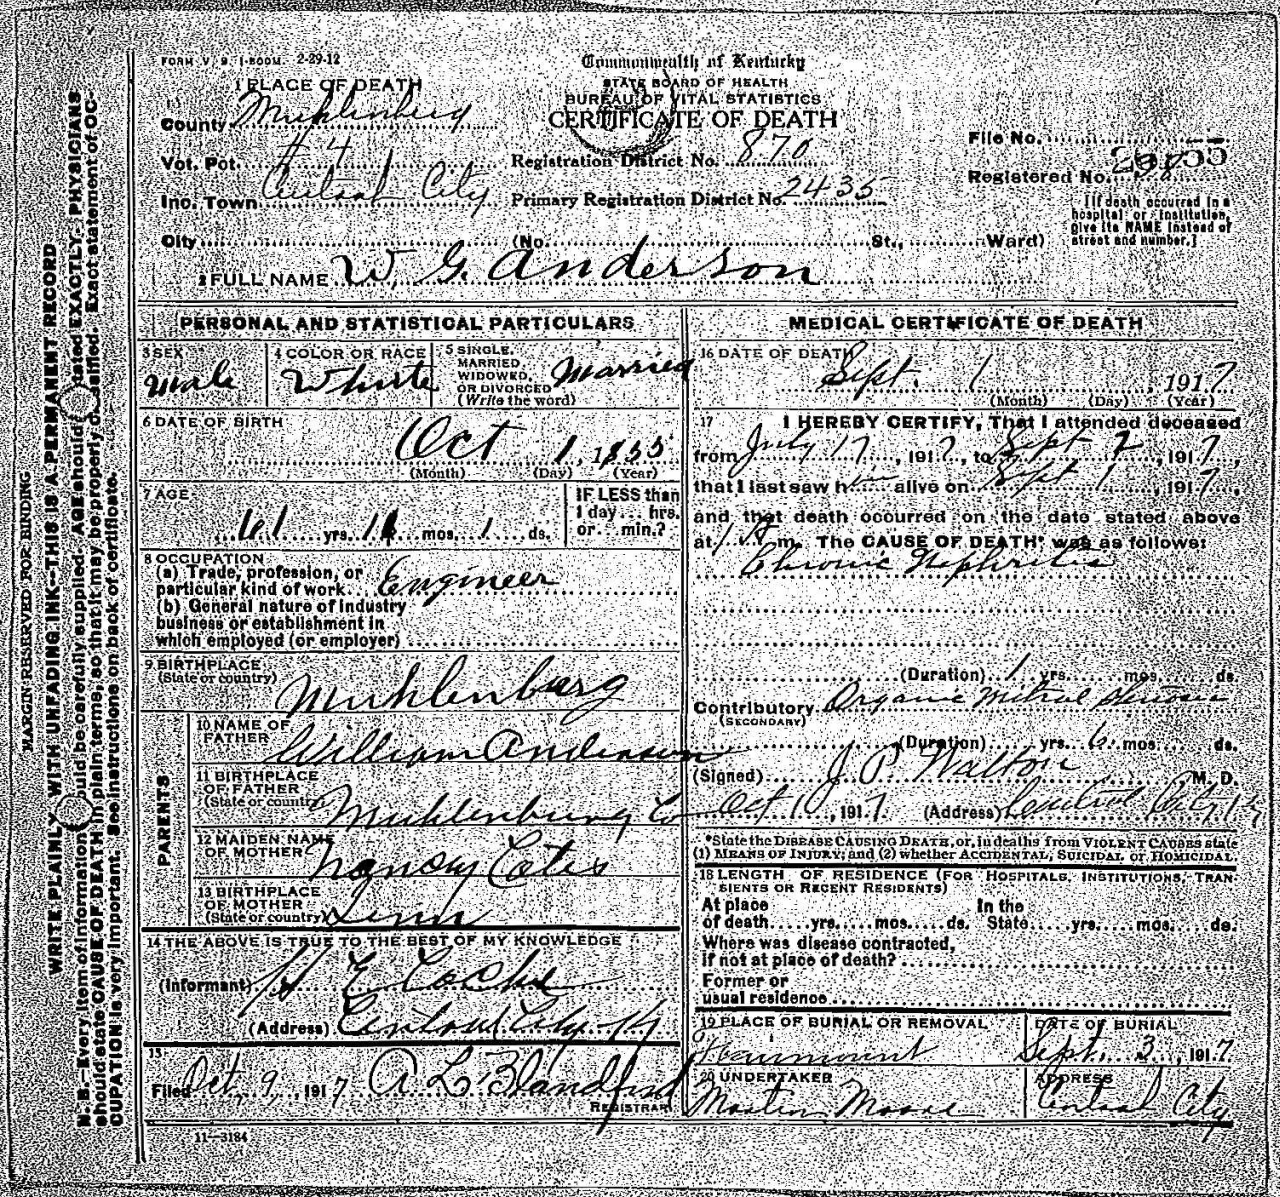 FORM V. S. 1-500M. 2-29-12
Commonwealth of Kentucky
STATE BOARD OF HEALTH
BUREAU OF VITAL STATISTICS
CERTIFICATE OF DEATH
1 PLACE OF DEATH
County Muhlenberg
Vot. Pct. #4
Inc. Town Central City
Registration District No. 870
Primary Registration District No. 2435
File No.
Registered No.
[If death occurred in a
hospital or institution,
give its NAME instead of
street and number.]
City (No. St., Ward)
2 FULL NAME W. G. Anderson
PERSONAL AND STATISTICAL PARTICULARS
3 SEX Male
4 COLOR OR RACE White
5 SINGLE, MARRIED, WIDOWED, OR DIVORCED (Write the word) Married
6 DATE OF BIRTH
Oct 1, 1855
(Month) (Day) (Year)
7 AGE
61 yrs. 11 mos. 1 ds.
IF LESS than
1 day... hrs.
or... min.?
8 OCCUPATION
(a) Trade, profession, or
particular kind of work Engineer
(b) General nature of industry
business or establishment in
which employed (or employer)
9 BIRTHPLACE
(State or country) Muhlenberg
PARENTS
10 NAME OF
FATHER William Anderson
11 BIRTHPLACE
OF FATHER
(State or country) Muhlenburg Co
12 MAIDEN NAME
OF MOTHER Nancy Cates
13 BIRTHPLACE
OF MOTHER
(State or country)
14 THE ABOVE IS TRUE TO THE BEST OF MY KNOWLEDGE
(Informant) H E
(Address) Central City Ky
15
Filed Oct. 9, 1917 A L Blandford
REGISTRAR
11-3184
MEDICAL CERTIFICATE OF DEATH
16 DATE OF DEATH
Sept. 1, 1917
(Month) (Day) (Year)
17 I HEREBY CERTIFY, That I attended deceased
from July 17, 1917, to Sept 2, 1917,
that I last saw him alive on Sept 1, 1917,
and that death occurred on the date stated above
at 1 m. The CAUSE OF DEATH* was as follows:
Chronic Nephritis
(Duration) 1 yrs. mos. ds.
Contributory Organic Mitral
(SECONDARY)
(Duration) yrs. 6 mos. ds.
(Signed) J. P. Walton M. D.
Oct 1, 1917 (Address) Central City Ky
*State the DISEASE CAUSING DEATH, or, in deaths from VIOLENT CAUSES state
(1) MEANS OF INJURY; and (2) whether ACCIDENTAL, SUICIDAL or HOMICIDAL
18 LENGTH OF RESIDENCE (FOR HOSPITALS, INSTITUTIONS, TRAN-
SIENTS OR RECENT RESIDENTS)
At place
of death yrs. mos. ds.
In the
State yrs. mos. ds.
Where was disease contracted,
if not at place of death?
Former or
usual residence
19 PLACE OF BURIAL OR REMOVAL
DATE OF BURIAL
Sept. 3, 1917
20 UNDERTAKER
Martin Moore
ADDRESS
Central City
MARGIN RESERVED FOR BINDING
WRITE PLAINLY WITH UNFADING INK—THIS IS A PERMANENT RECORD
N. B.—Every item of information should be carefully supplied. AGE should be stated EXACTLY. PHYSICIANS
should state CAUSE OF DEATH in plain terms, so that it may be properly classified. Exact statement of OC-
CUPATION is very important. See instructions on back of certificate.